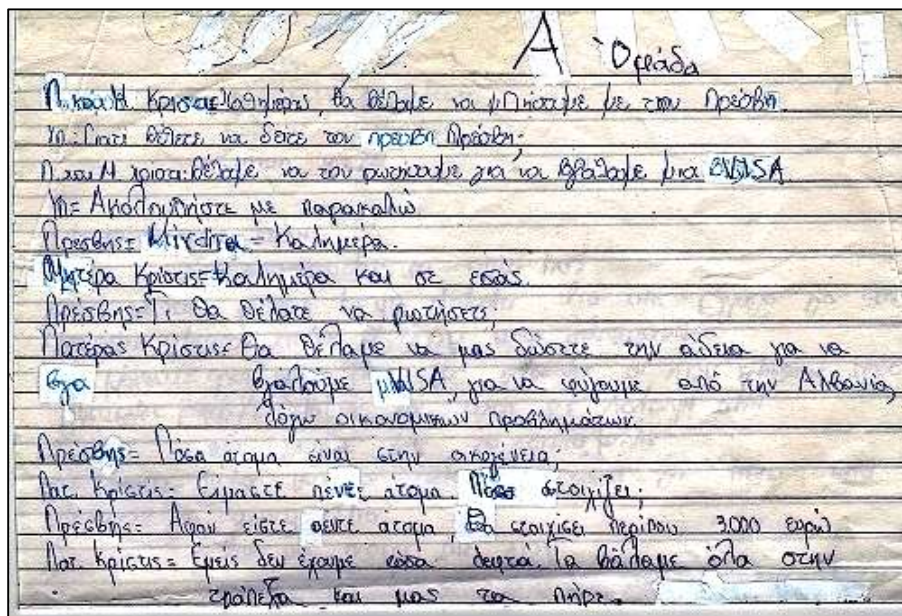 Α Ομάδα
Π. και Μ. Κριστι= Καλημέρα, θα θέλαμε να μιλήσουμε με τον Πρέσβη.
Γιατί θέλετε να δείτε τον πρέσβη Πρέσβη;
Π. και Μ κριστι: θέλαμε να τον ρωτήσουμε για να βγάλαμε μια VISA
= Ακολουθήστε με παρακαλώ
Πρέσβης= Mirdita = Καλημέρα.
Μητέρα Κρίστις= Καλημέρα και σε εσάς.
Πρέσβης= Τι θα θέλατε να ρωτήστε;
Πατέρας Κρίστις= Θα θέλαμε να μας δώσετε την άδεια για να
βγα βγαλουμε VISA για να φύγουμε από την Αλβανία
λόγω οικονομικών προβλημάτων.
Πρέσβης= Πόσα άτομα είναι στην οικογένεια;
Πατ. Κρίστις= Είμαστε πέντε άτομα. Πόσο στοιχίζει;
Πρέσβης= Αφού είστε πέντε άτομα, θα στοιχίσει περίπου 3.000 ευρώ
Πατ. Κρίστις= Εμείς δεν έχουμε τόσα λεφτά. Τα βάλαμε όλα στην
τράπεζα και μας τα πήρε.